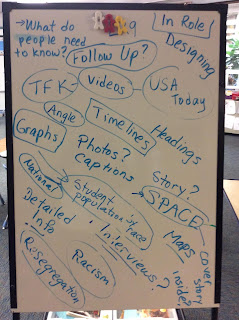 →What do
people need
to know?
9
In Role/
Designing
Follow Up?
TFK
Videos
USA
Today
Angle
Timelines
Graphs
Photos?
captions
Headings
National
Student
population/race
Story?
SPACE
Detailed
Info
Interviews?
Maps
cover
story
inside?
Resegregation
Racism